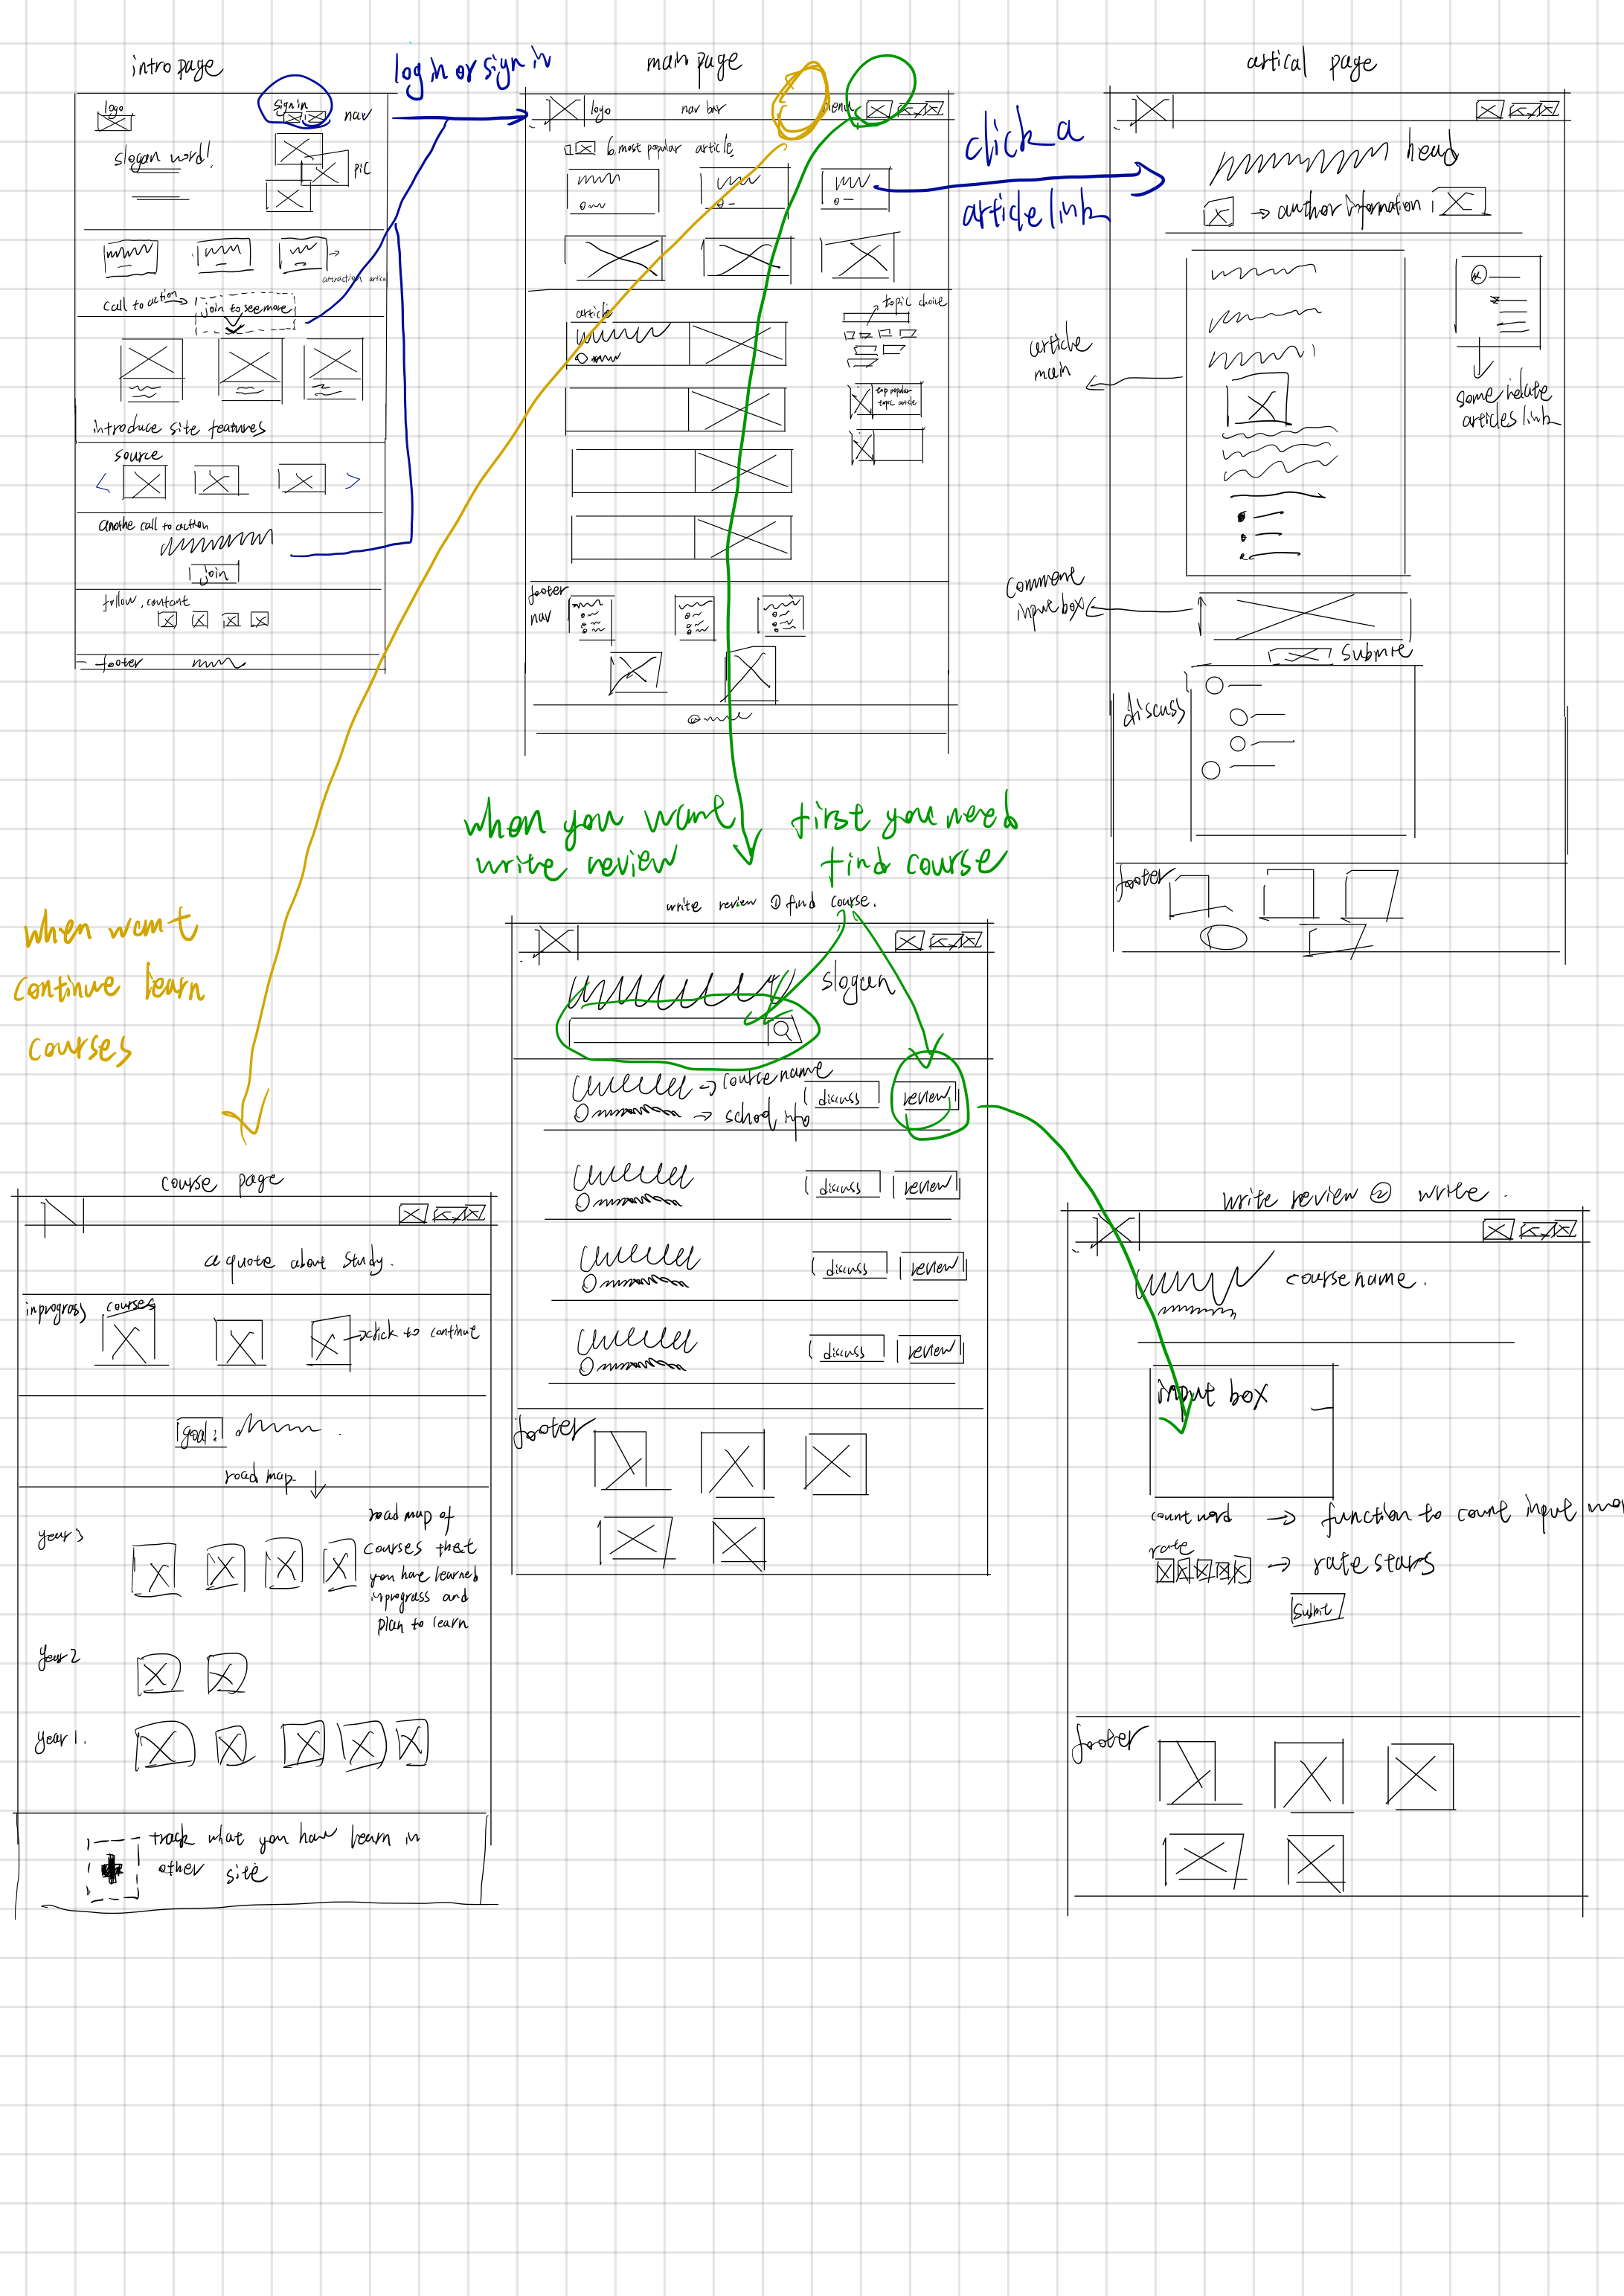 intro page
logo
sign in
nav
slogan word!
pic
call to action
join to see more
introduce site features
source
anothe call to action
join
follow, contant
footer
log in or sign in
main page
logo
nav bar
menu
6 most popular article
article
topic choice
top popular
topic article
footer
nav
click a
article link
artical page
head
author information
article
main
some relate
articles link
comment
input box
submite
discuss
footer
when you want
write review
first you need
find course
write review ① find course.
slogan
course name
school info
discuss
review
discuss
review
discuss
review
discuss
review
footer
when want
continue learn
courses
course page
a quote about study.
inprograss
courses
click to continue
goal:
road map
year 3
road map of
courses that
you have learned
inprograss and
plan to learn
year 2
year 1.
track what you have learn in
other site
write review ② write.
course name.
input box
count word
function to count input
rate
rate stars
submit
footer